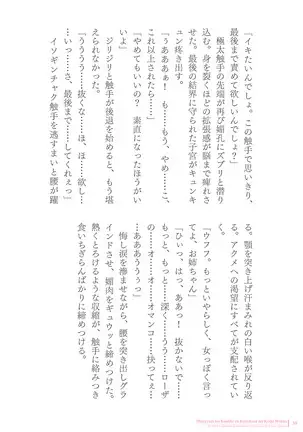 「イキたいんでしょ。この触手で思いきり、
最後まで責めて欲しいんでしょ？」
極太触手の先端が再び媚孔にズブリと潜り
込む。身を裂くほどの拡張感が脳まで痺れさ
せた。最後の結界に守られた子宮がキュンキ
ュン疼き出す。
「うぁああぁ！　も……もう、やめ……こ
これ以上されたら……」
「やめてもいいの？　素直になったほうがい
いよ」
ジリジリと触手が後退を始めると、もう堪
えられなかった。
「うううう……抜くな……は、ほ……欲し
いっ……さ、最後まで……してくれぇっ」
イソギンチャク触手を逃すまいと腰が躍
る。顎を突き上げ汗まみれの白い喉が反り返
る。アクメへの渇望にすべてが支配されてい
く。
「ウフフ。もっといやらしく、女っぽく言っ
てよ、お姉ちゃん」
「ひぃっ、はっ、ああっ！　抜かないで……
もっと、もっと……深く……うう……ローザ
の……オ……オ……オマンコ……抉ってぇ…
…あああううぅっ」
悔し涙を滲ませながら、腰を突き出しグラ
インドさせ、媚肉をギュウッと締めつけた。
熱くとろけるような収縮が、触手に絡みつき
食いちぎらんばかりに締めつける。